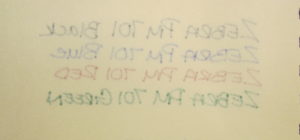 ZEBRA PM 701 Black
ZEBRA PM 701 Blue
ZEBRA PM 701 RED
ZEBRA PM 701 GREEN